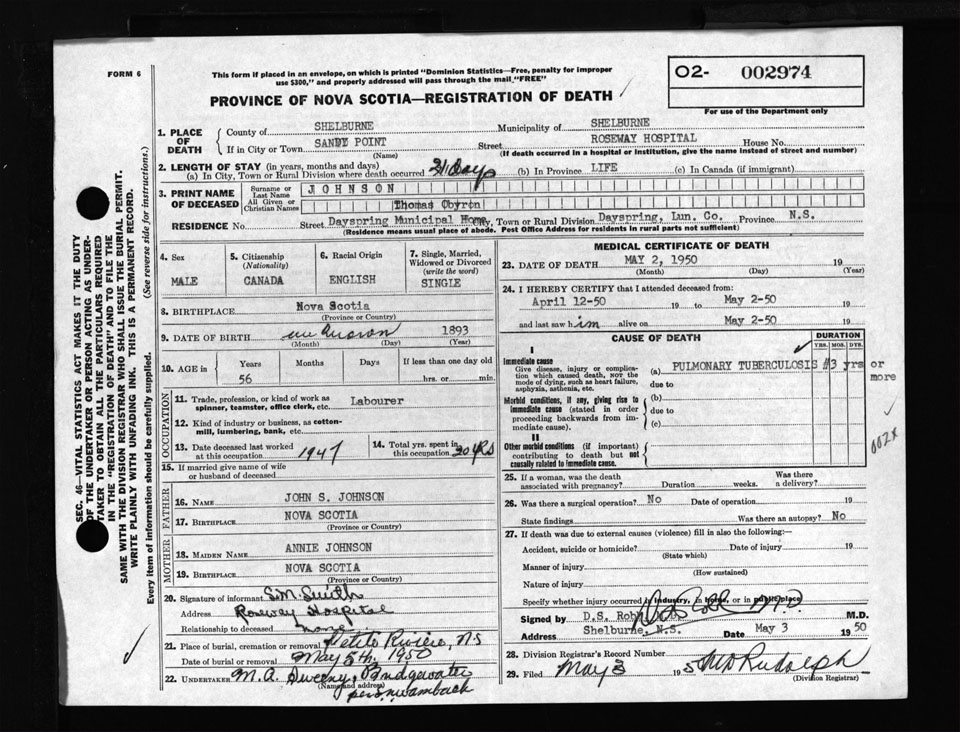 FORM 6
This form if placed in an envelope, on which is printed "Dominion Statistics—Free, penalty for improper
use $300," and properly addressed will pass through the mail "FREE"
O2- 002974
For use of the Department only
PROVINCE OF NOVA SCOTIA—REGISTRATION OF DEATH
1. PLACE OF DEATH
County of SHELBURNE Municipality of SHELBURNE
If in City or Town SANDY POINT Street ROSEWAY HOSPITAL House No.
(Name) (If death occurred in a hospital or institution, give the name instead of street and number)
2. LENGTH OF STAY (in years, months and days)
(a) In City, Town or Rural Division where death occurred 21 days (b) In Province LIFE (c) In Canada (if immigrant)
3. PRINT NAME OF DECEASED
Surname or Last Name JOHNSON
All Given or Christian Names Thomas Obyron
RESIDENCE No. Street Dayspring Municipal Home City, Town or Rural Division Dayspring, Lun. Co. Province N.S.
(Residence means usual place of abode. Post Office Address for residents in rural parts not sufficient)
4. Sex MALE
5. Citizenship (Nationality) CANADA
6. Racial Origin ENGLISH
7. Single, Married, Widowed or Divorced (write the word) SINGLE
8. BIRTHPLACE Nova Scotia
(Province or Country)
9. DATE OF BIRTH unknown 1893
(Month) (Day) (Year)
10. AGE in Years Months Days If less than one day old
56 hrs. or min.
OCCUPATION
11. Trade, profession, or kind of work as spinner, teamster, office clerk, etc. Labourer
12. Kind of industry or business, as cotton-mill, lumbering, bank, etc.
13. Date deceased last worked at this occupation 1947
14. Total yrs. spent in this occupation 30 yrs
15. If married give name of wife or husband of deceased
FATHER
16. NAME JOHN S. JOHNSON
17. BIRTHPLACE NOVA SCOTIA
(Province or Country)
MOTHER
18. MAIDEN NAME ANNIE JOHNSON
19. BIRTHPLACE NOVA SCOTIA
(Province or Country)
20. Signature of informant S.M. Smith
Address Roseway Hospital
Relationship to deceased none
21. Place of burial, cremation or removal Petite Riviere, N.S
Date of burial or removal May 5th, 1950
22. UNDERTAKER M.A. Sweeny, Bridgewater
(Name and address)
per
MEDICAL CERTIFICATE OF DEATH
23. DATE OF DEATH MAY 2, 1950 19
(Month) (Day) (Year)
24. I HEREBY CERTIFY that I attended deceased from:
April 12-50 19 to May 2-50 19
and last saw him alive on May 2-50 19
CAUSE OF DEATH
DURATION
YRS. MOS. DYS.
I
Immediate cause
Give disease, injury or complication which caused death, NOT the mode of dying, such as heart failure, asphyxia, asthenia, etc.
(a) PULMONARY TUBERCULOSIS #3 yrs or more
due to
Morbid conditions, if any, giving rise to immediate cause (stated in order proceeding backwards from immediate cause).
(b)
due to
(c)
II
Other morbid conditions (if important) contributing to death but not causally related to immediate cause.
002X
25. If a woman, was the death associated with pregnancy? Duration weeks. Was there a delivery?
26. Was there a surgical operation? No Date of operation 19
State findings Was there an autopsy? No
27. If death was due to external causes (violence) fill in also the following:—
Accident, suicide or homicide? Date of injury 19
(State which)
Manner of injury
(How sustained)
Nature of injury
Specify whether injury occurred in industry, in home, or in public place
Signed by D.S. Robb, M.D.
Address Shelburne, N.S. Date May 3 1950
28. Division Registrar's Record Number
29. Filed May 3 195 Rudolph
(Division Registrar)
SEC. 46—VITAL STATISTICS ACT MAKES IT THE DUTY
OF THE UNDERTAKER OR PERSON ACTING AS UNDER-
TAKER TO OBTAIN ALL THE PARTICULARS REQUIRED
IN THE "REGISTRATION OF DEATH" AND TO FILE THE
SAME WITH THE DIVISION REGISTRAR WHO SHALL ISSUE THE BURIAL PERMIT.
WRITE PLAINLY WITH UNFADING INK. THIS IS A PERMANENT RECORD.
Every item of information should be carefully supplied. (See reverse side for instructions.)